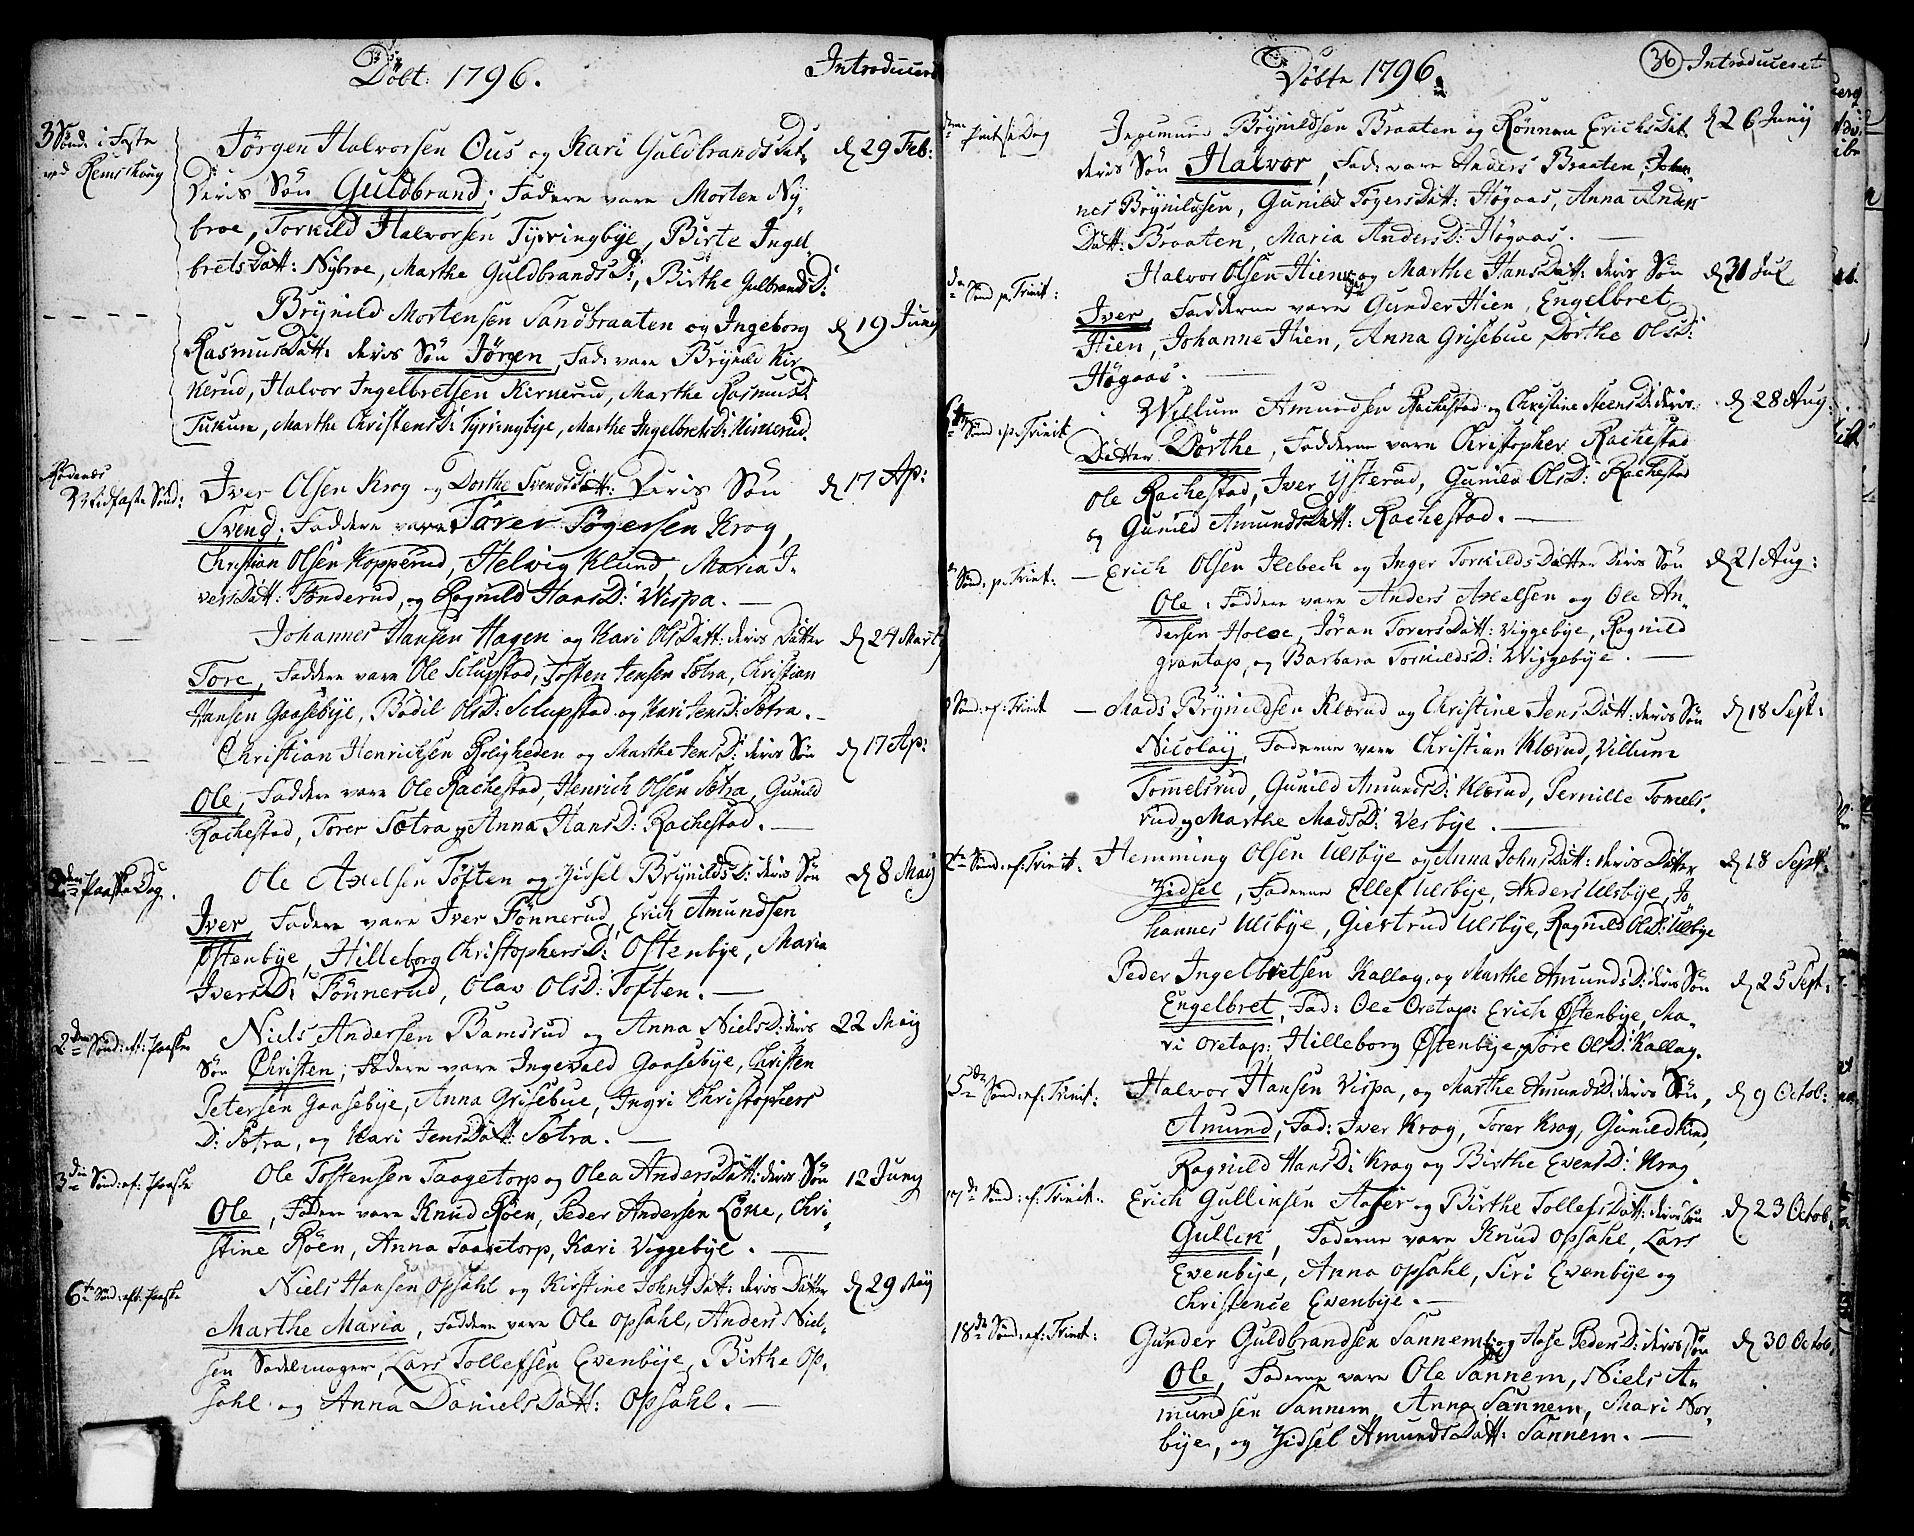 Döbt: 1796. Introduceret
3 Sönd: i Faste
ved Remskoug
Jörgen Halvorsen Ous og Kari GuldbrandsDat: d 29 Feb:
Deris Sön Guldbrand, Fadere vare Morten Ny-
broe, Torkild Halvorsen Tyrringbÿe, Birte Ingel-
bretsDatt: Nÿbroe, Marthe GuldbrandsD:, Birthe GulbrandsD:
Brÿnild Mortensen Sandbraaten og Ingeborg d 19 Junÿ
RasmusDatt: deris Sön Jörgen, Fad: vare Brÿnild Kir-
kerud, Halvor Ingelbretsen Kirkerud, Marthe RasmusD:
Tukum, Marthe ChristensD: Tÿrringbÿe, Marthe IngelbretsD: Kirkerud.
Rödenæs
Midfaste Sönd:
Iver Olsen Krog og Dorthe SvendsDatt: Deris Sön d 17 Ap:
Svend, Faddere vare Torer Tögersen Krog,
Christian Olsen Kopperud, Helvig Klund Maria I-
versDatt: Tönderud, og Ragnild HansD: Wispa. —
Johannes Hansen Hagen og Kari OlsDatt: deris Datter d 24 Marti
Tore, Faddere vare Ole Sclupstad, Tosten Jensen Sætra, Christian
Hansen Gaasebÿe, Bodil OlsD: Sclupstad og Kari JensD: Sætra. -
Christian Henrichsen Roligheden og Marthe JensD: deris Sön d 17 Ap:
Ole, Faddere vare Ole Rachestad, Henrich Olsen Sætra, Gunild
Rachestad, Torer Sætra og Anna HansD: Rachestad. —
2den PaaskeDag.
Ole Axelsen Toften og Zidsel BrÿnildsD: deris Sön d 8 Maÿ
Iver, Fadere vare Iver Tönnerud, Erich Amundsen
Ostenbÿe, Hilleborg ChristophersD: Ostenbÿe, Maria
IversD: Tönnerud, Olav OlsD: Toften. —
2den Sönd: eft: Paaske
Niels Andersen Bamsrud og Anna NielsD: deris 22 Maÿ
Sön Christen; Fadere vare Ingevald Gaasebÿe, Christen
Petersen Gaasebÿe, Anna Grisebue, Ingri Christophers
D: Sætra, og Kari JensDatt: Sætra. —
3die Sönd: ef: Paaske
Ole Tostensen Taagetorp og Olea AndersDatt: deris Sön 12 Junÿ
Ole, Fadere vare Knud Röen, Peder Andersen Löne, Chri-
stine Röen, Anna Taagetorp, Kari Viggebÿe. —
6te Sönd: eft: Paaske
Niels Hansen Opsahl og Kirstine JohnsDatt: deris Datter d 29 Maÿ
Marthe Maria, Faddere vare Ole Opsahl, Anders Niel-
sen Sadelmager, Lars Tollefsen Evenbÿe, Birthe Op-
sahl og Anna DanielsDatt: Opsahl. —
Döbte 1796. 36 Introduceret
Ingemund Brÿnildsen Braaten og Rönnau ErichsDat. d 26 Junÿ
deris Sön Halvor, Fad: vare Anders Braaten, Johan-
nes Brÿnildsen, Gunild TögersDatt: Högaas, Anna Anders
Datt: Braaten, Maria AndersD: Högaas. —
Sönd p. Trinit:
Halvor Olsen Hien og Marthe HansDatt: deris Sön d 31 Jul
Iver, Fadderne vare Gunder Hien, Engelbret
Hien, Johanne Hien, Anna Grisebue, Dorthe OlsD:
Högaas. —
6te Sönd: p. Trinit
Willum Amundsen Rachestad og Christine SteensD: deris d 28 Aug:
Datter Dorthe, Fadderne vare Christopher Rachestad
Ole Rachestad, Iver Ysterud, Gunild OlsD: Rachestad
og Gunild AmundsDatt: Rachestad. —
Sönd. p. Trint:
— Erich Olsen Ilebech og Inger TorkildsDatter Deris Sön d 21 Aug:
Ole, Faddere vare Anders Axelsen og Ole An-
dersen Holöe, Jöran ToversDatt: Viggebÿe, Ragnild
Grantap, og Barbara TorkildsD: Wiggebÿe. —
Sönd: ef: Trinit
— Mads Brÿnildsen Klærud og Christine JensDatt: deris Sön d 18 Sept:
Nicolaÿ, Faderne vare Christian Klærud, Villum
Tomelsrud, Gunild AmundsD: Klærud, Pernille Tomels-
rud og Marthe MadsD: Vesbÿe. —
Sönd: ef: Trinit:
Hemming Olsen Ulsbÿe og Anna JohnsDatt: deris Datter d 18 Sept:
Zidsel, Faderne Ellef Ulsbÿe, Anders Ulsbÿe, Jo-
hannes Ulsbÿe, Giertrud Ulsbÿe, Ragnild OlsD: Ulsbÿe
Peder Ingelbretsen Kallag, og Marthe AmundsD: deris Sön d 25 Sept:
Engelbret, Fad: Ole Oretap: Erich Østenbÿe, Ma-
ri Oretap, Hilleborg Østenbÿe, Tore OlsD: Kallag.
15de Sönd: ef: Trinit:
Halvor Hansen Vispa, og Marthe AmundsD: deris Sön, d 9 Octob:
Amund, Fad: Iver Krog, Torer Krog, Gunild Kind,
Ragnild HansD: Krog og Birthe EvensD: Krog.
17de Sönd: ef: Trinit:
Erich Gullichsen Aaser og Birthe TollefsDatt: deris Sön d 23 Octob:
Gullik, Faderne vare Knud Opsahl, Lars
Evenbÿe, Anna Opsahl, Siri Evenbÿe og
Christence Evenbÿe. —
18de Sönd: ef: Trinit:
Gunder Guldbrandsen Sannem og Aase PedersD: deris Sön d 30 Octob:
Ole, Faderne vare Ole Sannem, Niels A-
mundsen Sannem, Anna Sannem, Mari Nor-
bÿe, og Zidsel AmundsDatt: Sannem. —